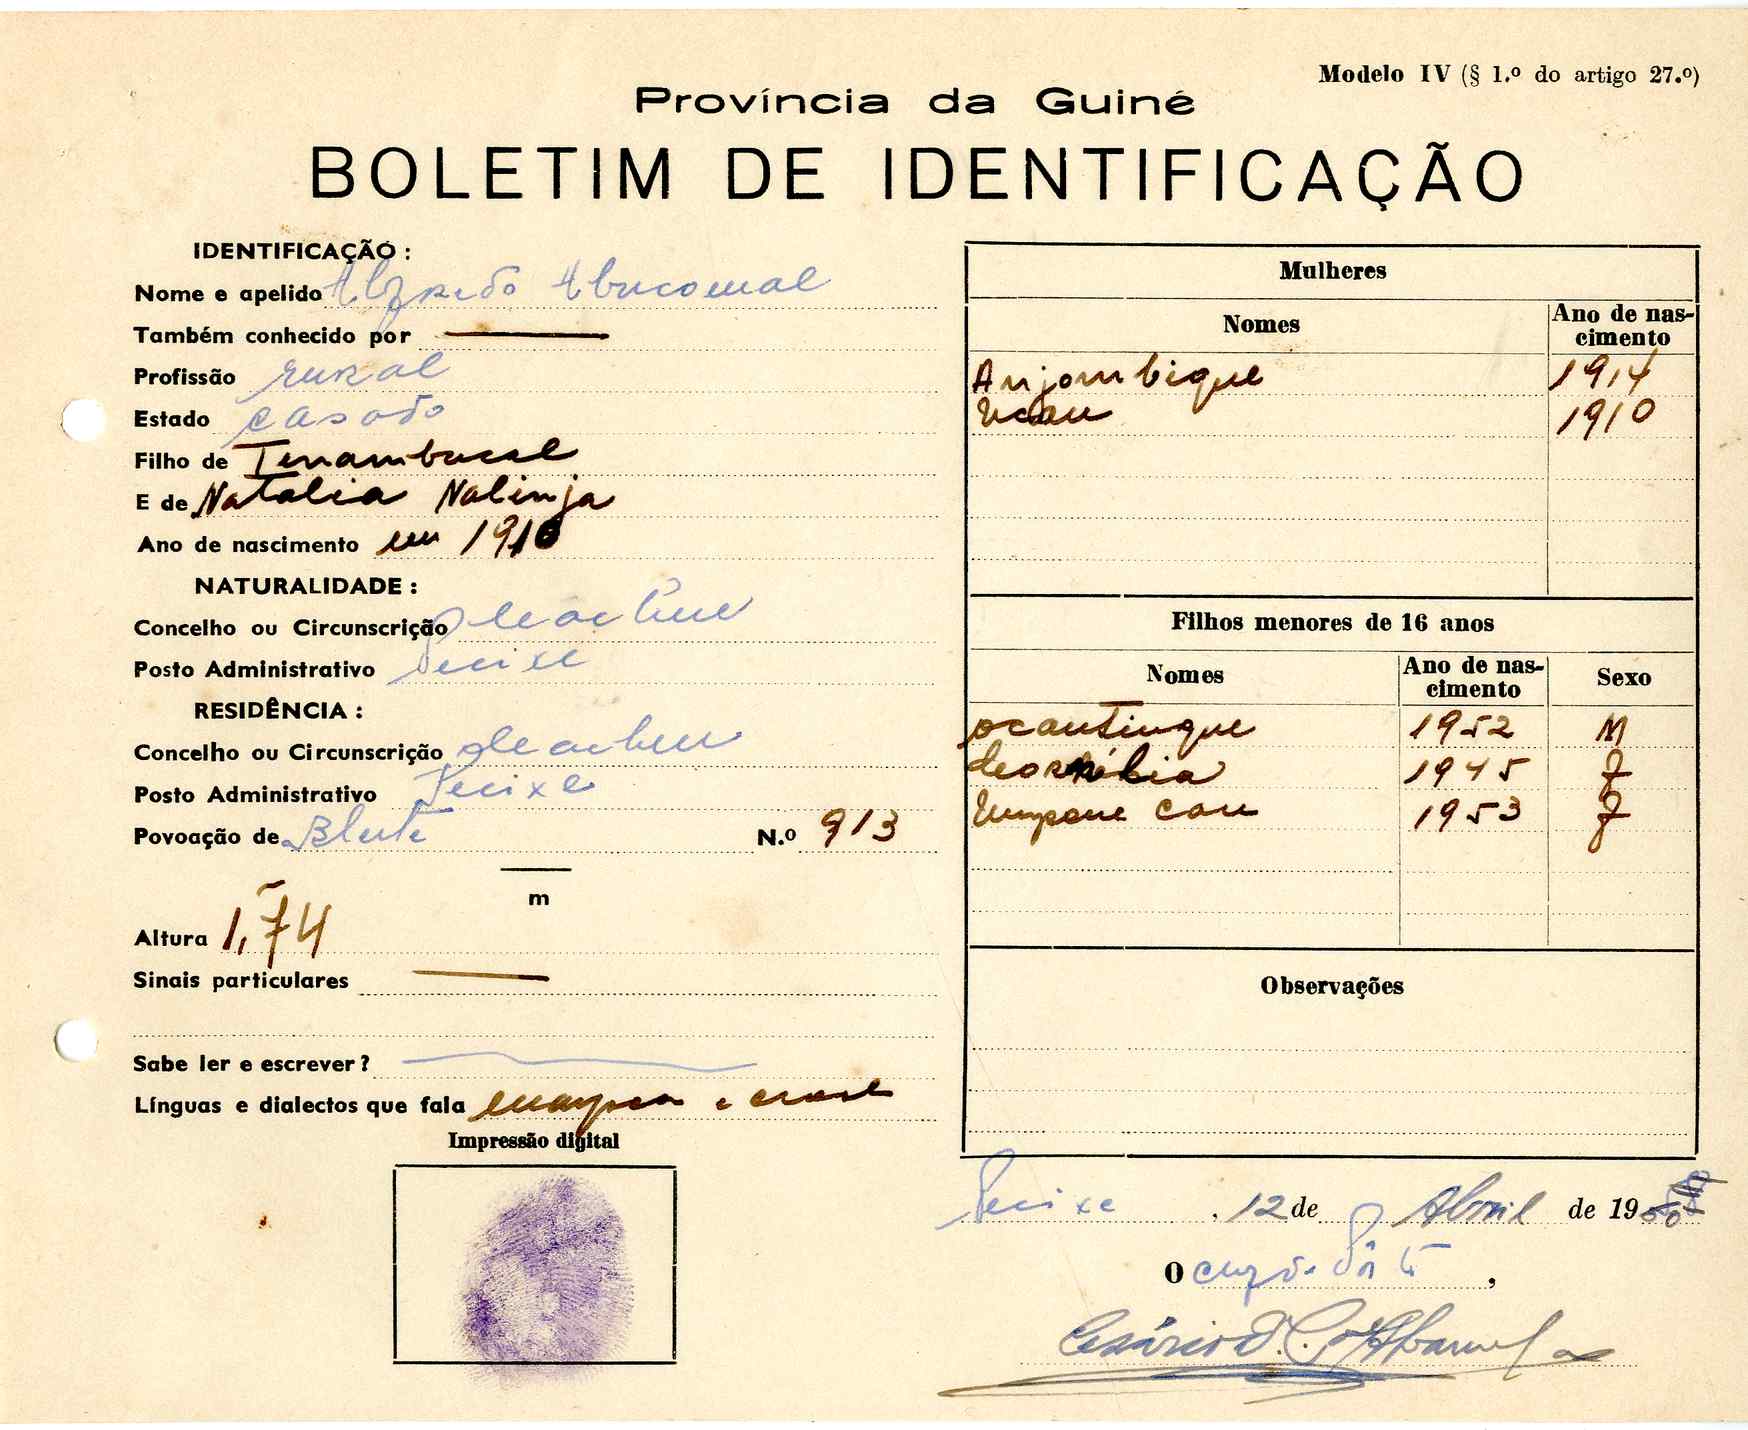 Modelo IV (§ 1.º do artigo 27.º)
Província da Guiné
BOLETIM DE IDENTIFICAÇÃO
IDENTIFICAÇÃO :
Nome e apelido Alfredo Abucomal
Também conhecido por
Profissão rural
Estado casado
Filho de
E de Natalia Nalinja
Ano de nascimento em 1910
NATURALIDADE :
Concelho ou Circunscrição
Posto Administrativo Pecixe
RESIDÊNCIA :
Concelho ou Circunscrição
Posto Administrativo Pecixe
Povoação de N.º 913
m
Altura 1,74
Sinais particulares
Sabe ler e escrever ?
Línguas e dialectos que fala e
Impressão digital
Mulheres
Nomes Ano de nas-cimento
Anjombique 1914
1910
Filhos menores de 16 anos
Nomes Ano de nas-cimento Sexo
Ocantingue 1952 M
1945 F
1953 F
Observações
Pecixe, 12 de Abril de 19
O